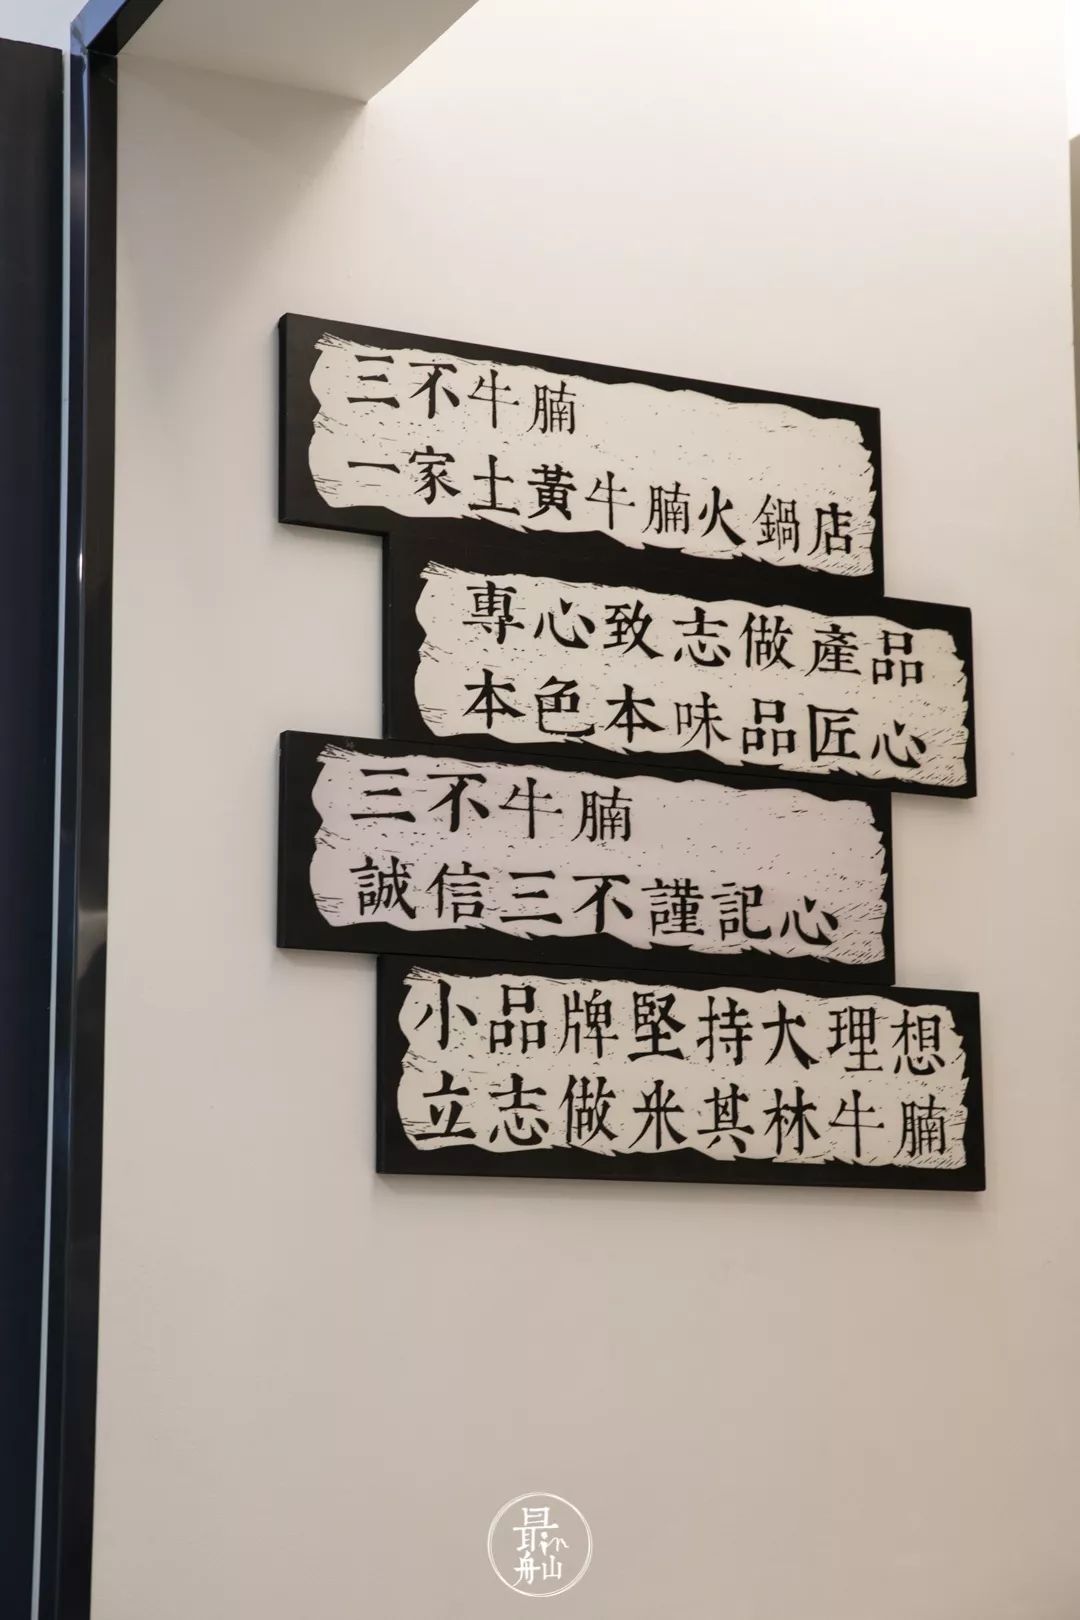 三不牛腩
一家土黃牛腩火鍋店
專心致志做產品
本色本味品匠心
三不牛腩
誠信三不謹記心
小品牌堅持大理想
立志做米其林牛腩
最in舟山